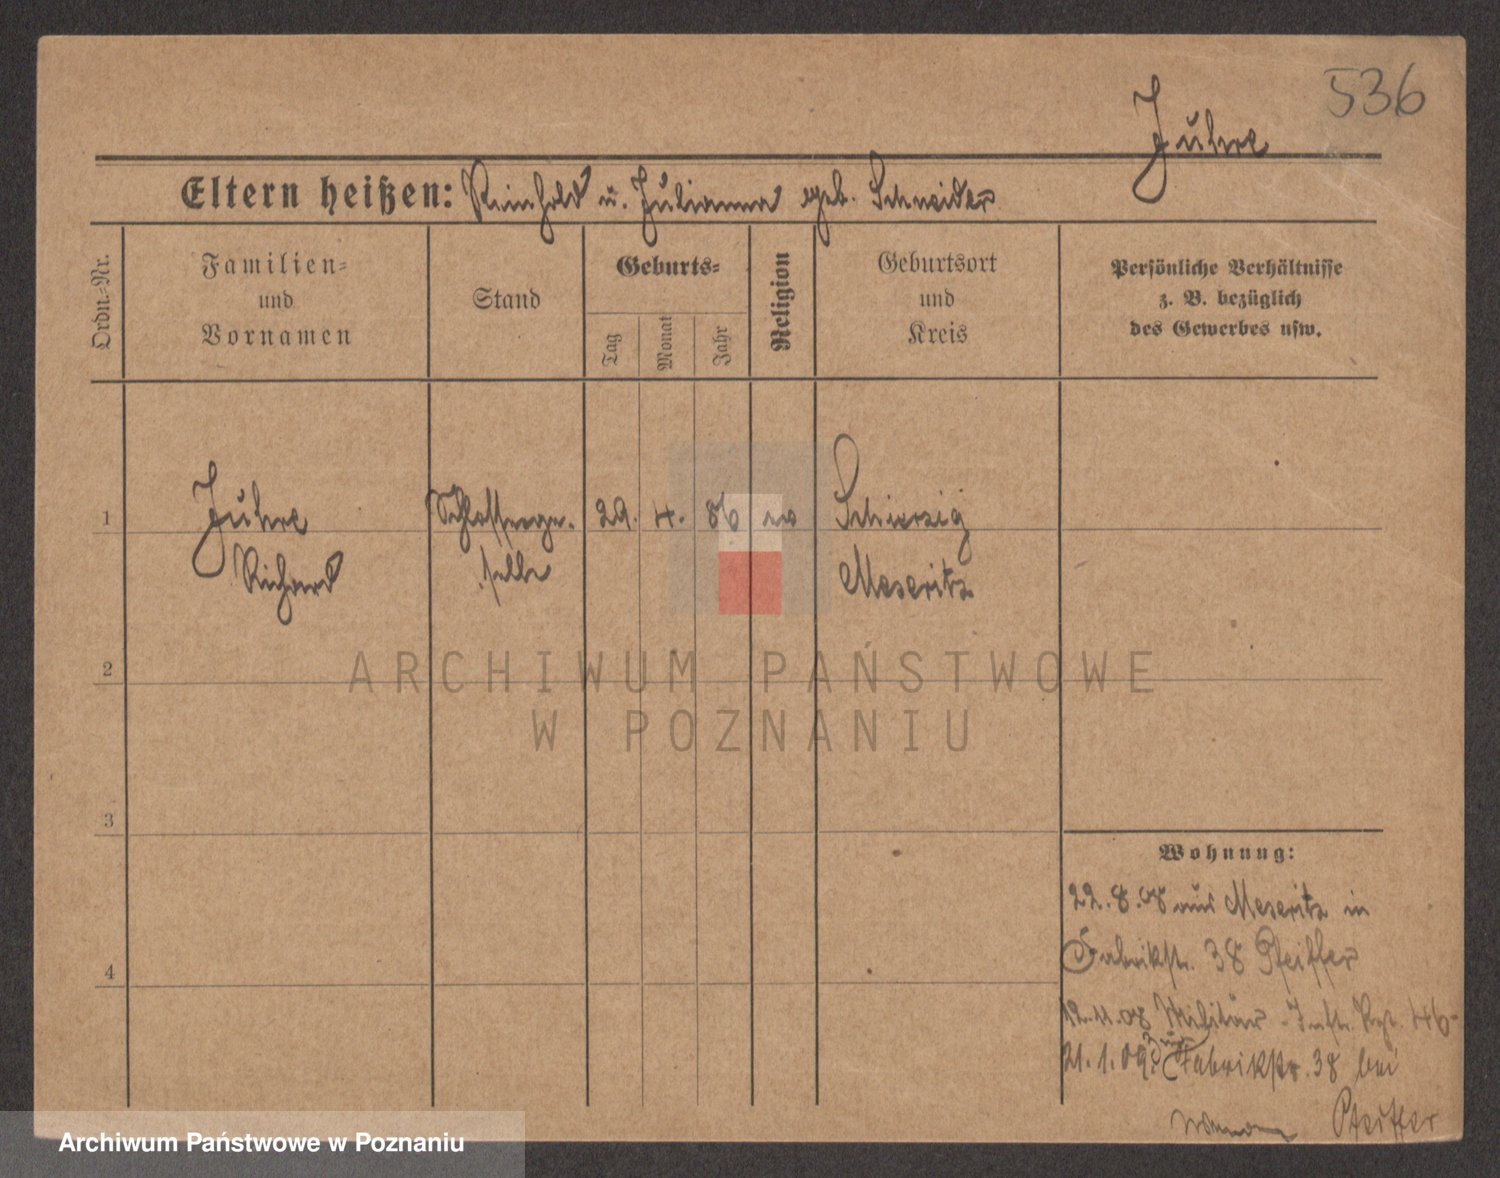 536
Juhre
Eltern heißen: Reinhold u. Julianna geb. Schneider
Ordn.-Nr.
Familien-
und
Vornamen
Stand
Geburts-
Tag
Monat
Jahr
Religion
Geburtsort
und
Kreis
Persönliche Verhältnisse
z. B. bezüglich
des Gewerbes usw.
1
Juhre
Richard
Schlosserge-
selle
29. 4. 86
ev
Schierzig
Meseritz
2
3
4
Wohnung:
22.8.08 aus Meseritz in
Fabrikstr. 38 Pfeiffer
12.11.08 Militär - Inft. Rgt. 46-
21.1.09. Fabrikstr. 38 bei
Pfeiffer
ARCHIWUM PAŃSTWOWE
W POZNANIU
Archiwum Państwowe w Poznaniu